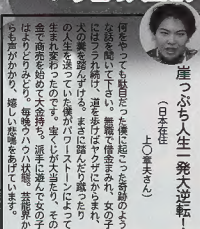 崖っぷち人生一発大逆転!
(日本在住
上〇章夫さん)
何をやっても駄目だった僕に起こった奇跡のよう
な話を聞いて下さい。無職で借金まみれ、女の子
にはフラれ続け、道を歩けばヤクザにからまれ、
犬の糞を踏んずける。まさに踏んだり蹴ったり
の人生を送っていた僕がパワーストーンによって
生まれ変わったのです。宝くじが大当たり、その
金で商売を始めて大金持ち。派手に遊んで女の子
はよりどりみどり、毎晩ウハウハ状態。芸能界か
らも声がかかり、嬉しい悲鳴をあげています。